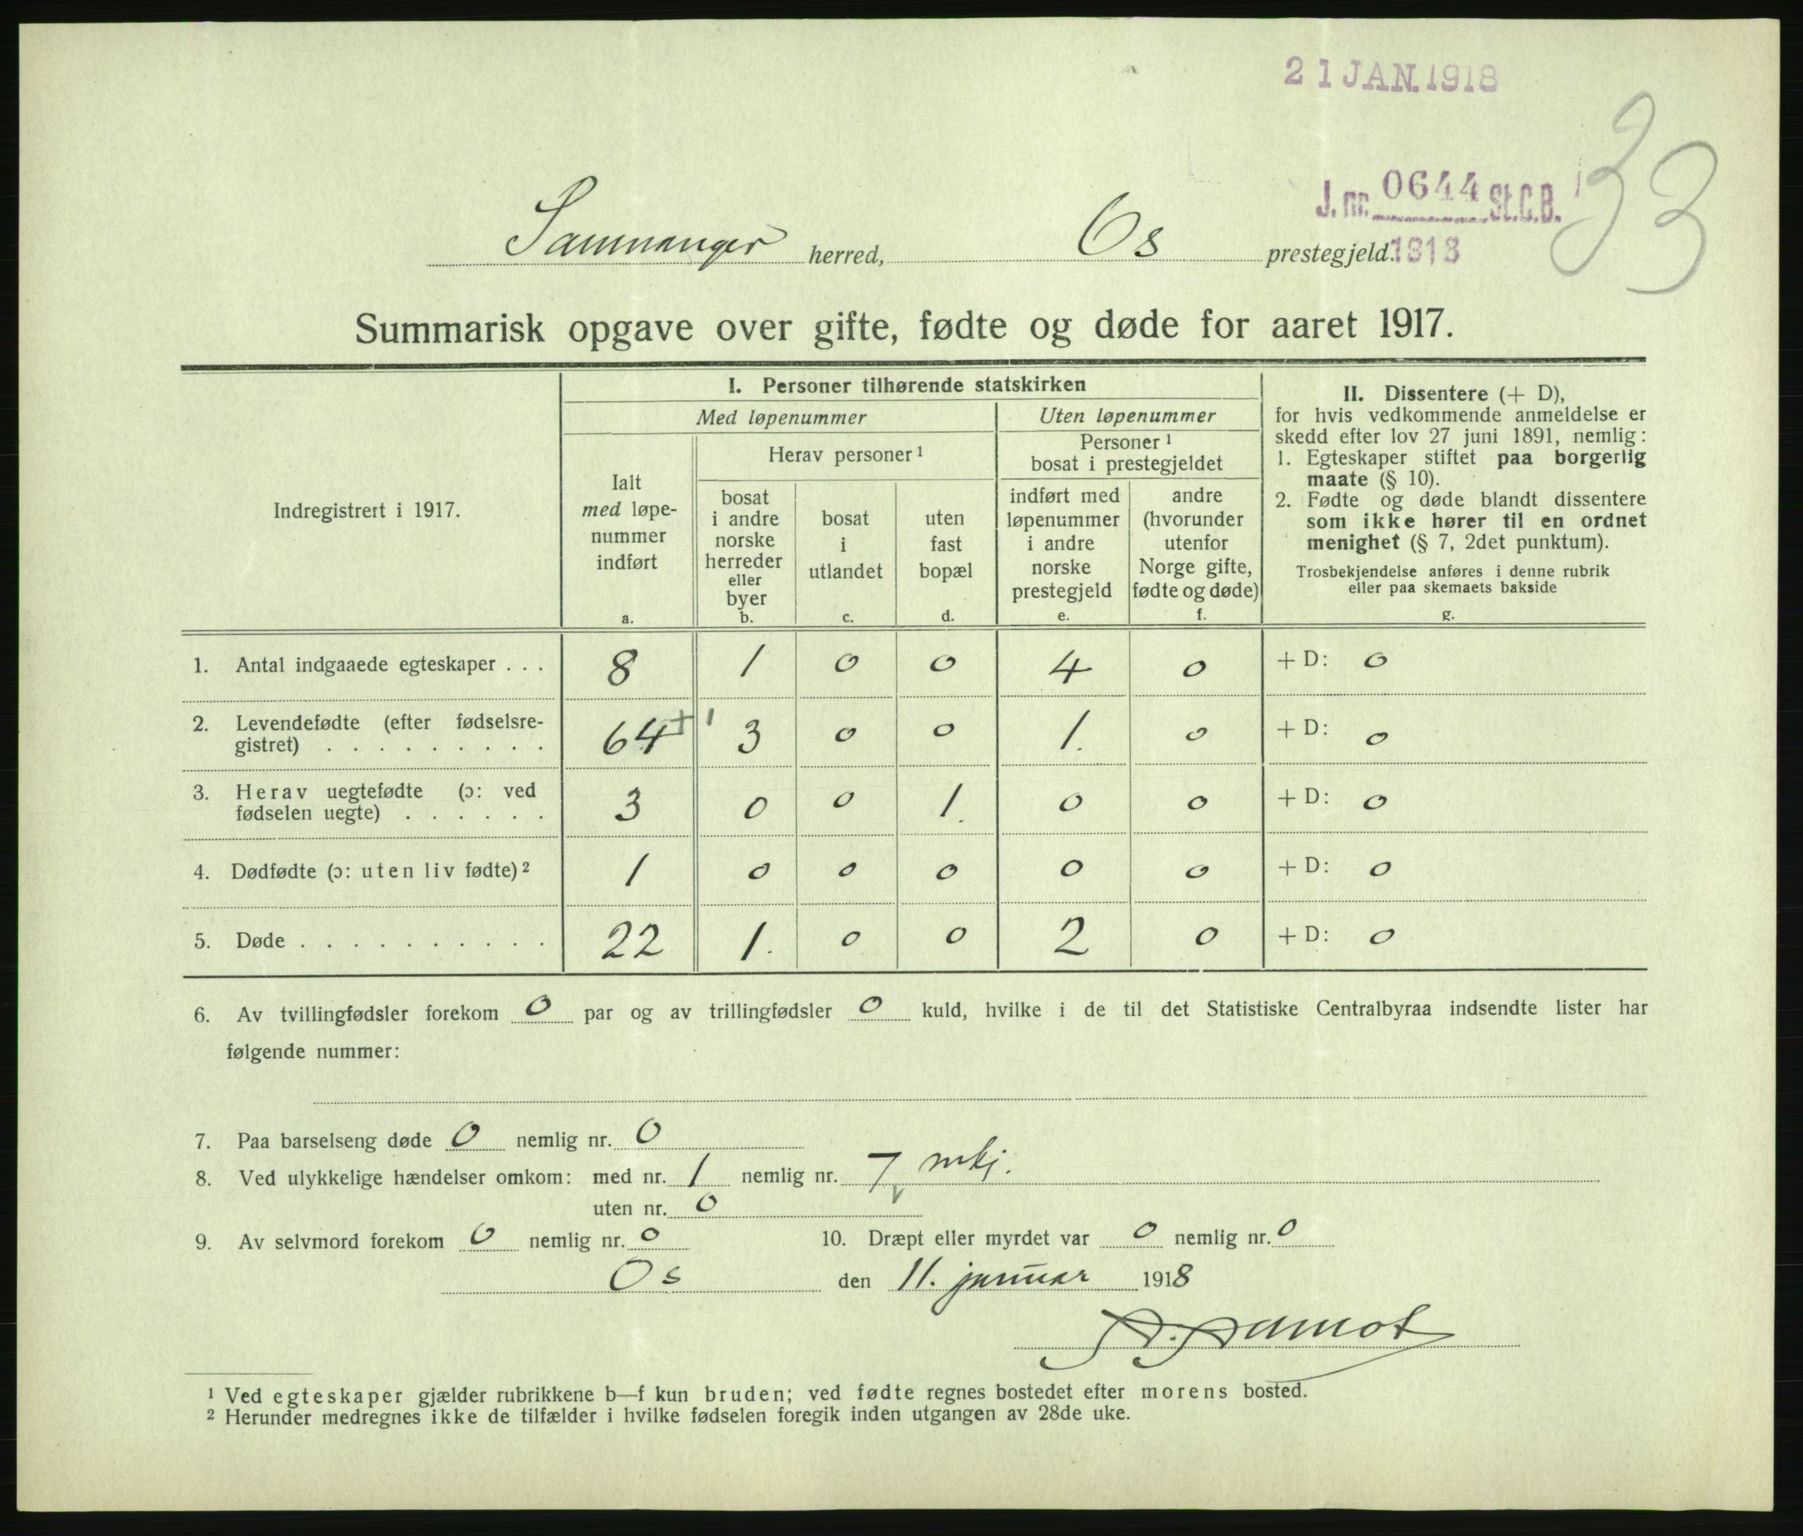 21 JAN. 1918
33
J. nr. 0644 St. C. B.
Samnanger herred, Os prestegjeld. 1918
Summarisk opgave over gifte, fødte og døde for aaret 1917.
Indregistrert i 1917.
I. Personer tilhørende statskirken
Med løpenummer
Uten løpenummer
Ialt
med løpe-
nummer
indført
a.
Herav personer ¹
bosat
i andre
norske
herreder
eller
byer
b.
bosat
i
utlandet
c.
uten
fast
bopæl
d.
Personer ¹
bosat i prestegjeldet
indført med
løpenummer
i andre
norske
prestegjeld
e.
andre
(hvorunder
utenfor
Norge gifte,
fødte og døde)
f.
II. Dissentere (+ D),
for hvis vedkommende anmeldelse er
skedd efter lov 27 juni 1891, nemlig:
1. Egteskaper stiftet paa borgerlig
maate (§ 10).
2. Fødte og døde blandt dissentere
som ikke hører til en ordnet
menighet (§ 7, 2det punktum).
Trosbekjendelse anføres i denne rubrik
eller paa skemaets bakside
g.
1. Antal indgaaede egteskaper . . . 8 1 0 0 4 0 + D: 0
2. Levendefødte (efter fødselsre-
gistret) . . . . . . . . . 64 +1 3 0 0 1. 0 + D: 0
3. Herav uegtefødte (ɔ: ved
fødselen uegte) . . . . . . 3 0 0 1. 0 0 + D: 0
4. Dødfødte (ɔ: uten liv fødte) ² 1 0 0 0 0 0 + D: 0
5. Døde . . . . . . . . . . 22 1. 0 0 2 0 + D: 0
6. Av tvillingfødsler forekom 0 par og av trillingfødsler 0 kuld, hvilke i de til det Statistiske Centralbyraa indsendte lister har
følgende nummer:
7. Paa barselseng døde 0 nemlig nr. 0
8. Ved ulykkelige hændelser omkom: med nr. 1 nemlig nr. 7 mkj.
uten nr. 0
9. Av selvmord forekom 0 nemlig nr. 0 10. Dræpt eller myrdet var 0 nemlig nr. 0
Os den 11. januar 1918
¹ Ved egteskaper gjælder rubrikkene b—f kun bruden; ved fødte regnes bostedet efter morens bosted.
² Herunder medregnes ikke de tilfælder i hvilke fødselen foregik inden utgangen av 28de uke.